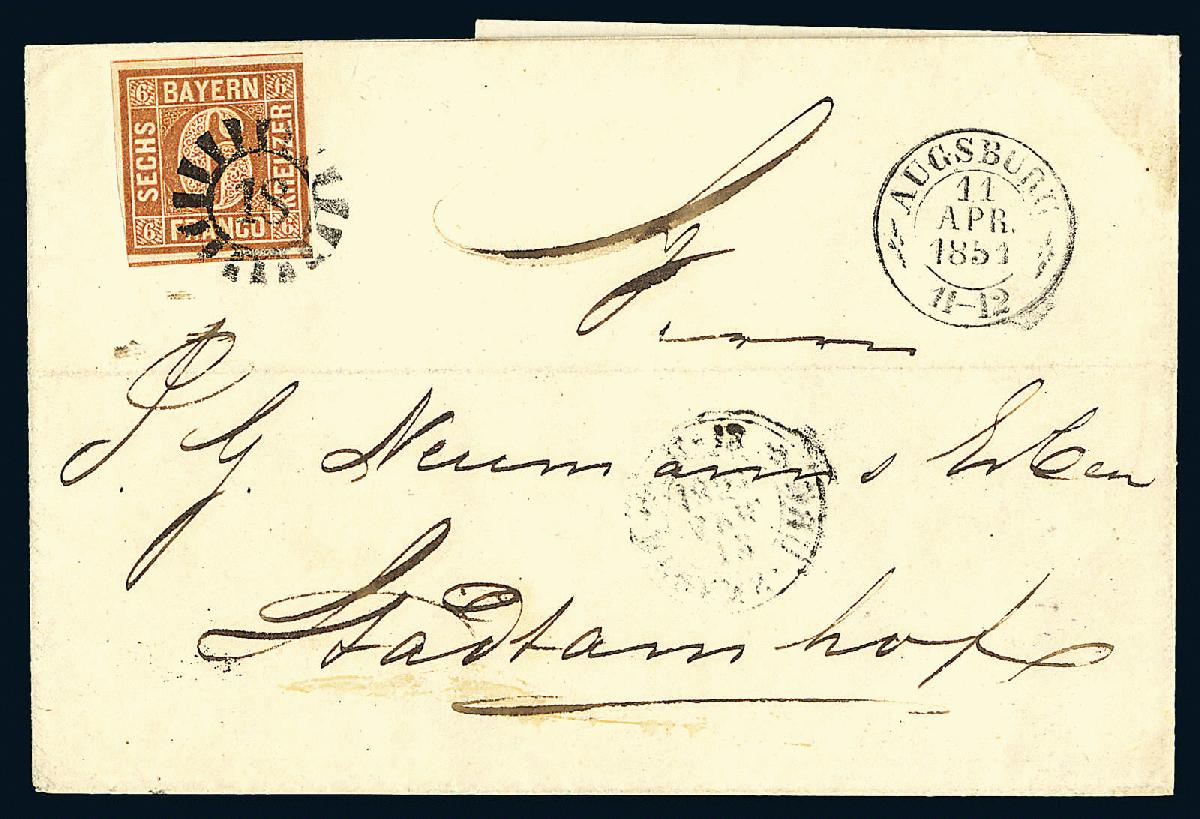 6 BAYERN 6
SECHS
KREUZER
6 FRANCO 6
18
AUGSBURG
11
APR.
1851
11-12
Herrn
P. G. Neumanns Erben
Stadtamhof